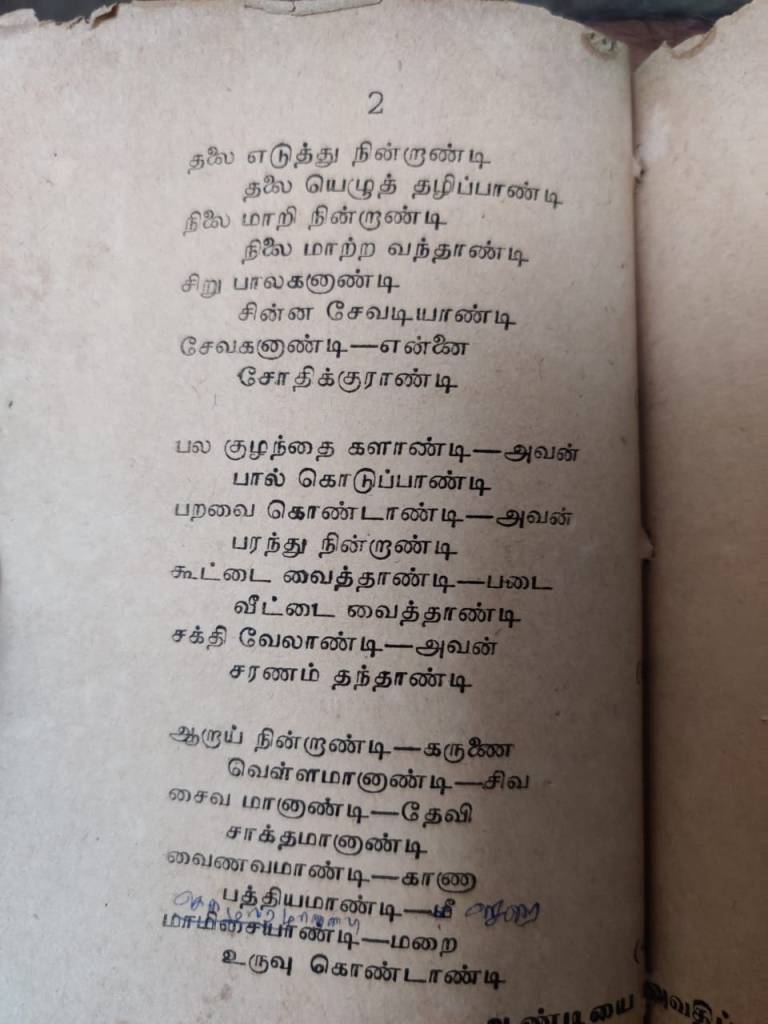 2
தலை எடுத்து நின்றாண்டி
தலை யெழுத் தழிப்பாண்டி
நிலை மாறி நின்றாண்டி
நிலை மாற்ற வந்தாண்டி
சிறு பாலகனாண்டி
சின்ன சேவடியாண்டி
சேவகனாண்டி—என்னை
சோதிக்குராண்டி
பல குழந்தை களாண்டி—அவன்
பால் கொடுப்பாண்டி
பறவை கொண்டாண்டி—அவன்
பரந்து நின்றாண்டி
கூட்டை வைத்தாண்டி—படை
வீட்டை வைத்தாண்டி
சக்தி வேலாண்டி—அவன்
சரணம் தந்தாண்டி
ஆறாய் நின்றாண்டி—கருணை
வெள்ளமானாண்டி—சிவ
சைவ மானாண்டி—தேவி
சாக்தமானாண்டி
வைணவமாண்டி—காணா
பத்தியமாண்டி—மீ
மாமிசையாண்டி—மறை
உருவு கொண்டாண்டி
ஆண்டியை